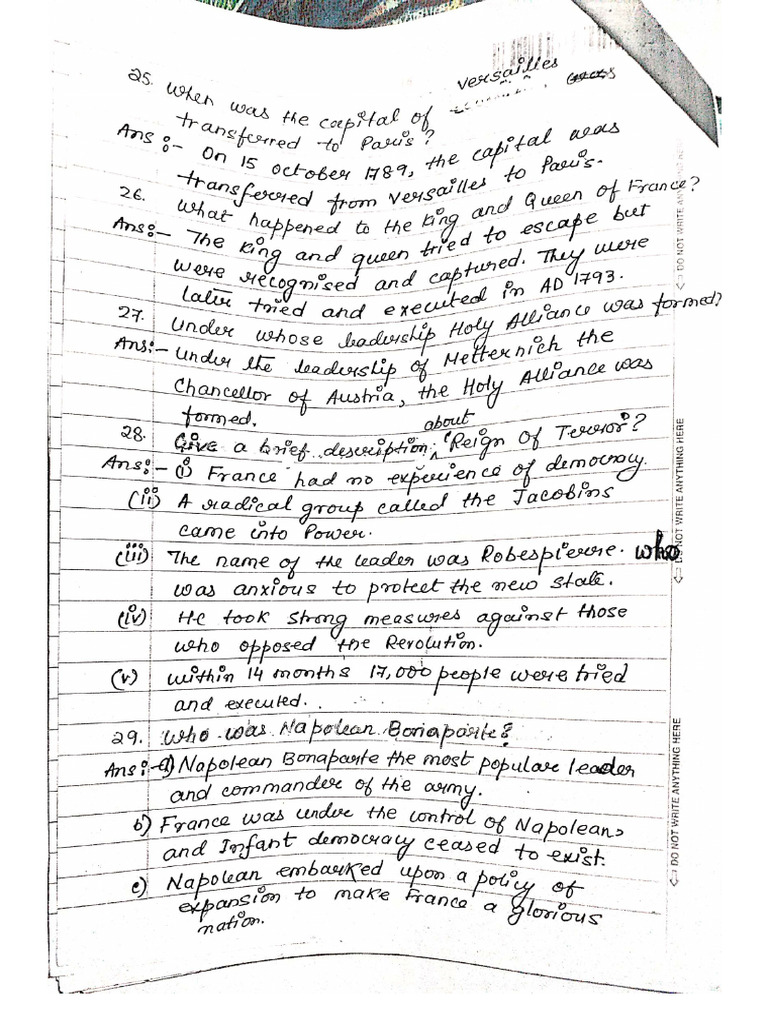 25. When was the capital of Versailles
transferred to Paris?
Ans:- On 15 October 1789, the capital was
transferred from Versailles to Paris.
26. What happened to the king and Queen of France?
Ans:- The king and queen tried to escape but
were recognised and captured. They were
later tried and executed in AD 1793.
27. Under whose leadership Holy Alliance was formed?
Ans:- Under the leadership of Metternich the
Chancellor of Austria, the Holy Alliance was
formed.
28. Give a brief description about 'Reign of Terror'?
Ans:- (i) France had no experience of democracy.
(ii) A radical group called the Jacobins
came into Power.
(iii) The name of the leader was Robespierre. who
was anxious to protect the new state.
(iv) He took strong measures against those
who opposed the Revolution.
(v) within 14 months 17,000 people were tried
and executed.
29. Who was Napolean Bonaparte?
Ans:- a) Napolean Bonaparte the most populare leader
and commander of the army.
b) France was under the control of Napolean,
and Infant democracy ceased to exist.
c) Napolean embarked upon a policy of
expansion to make France a glorious
nation.
DO NOT WRITE ANYTHING HERE
DO NOT WRITE ANYTHING HERE
DO NOT WRITE ANYTHING HERE